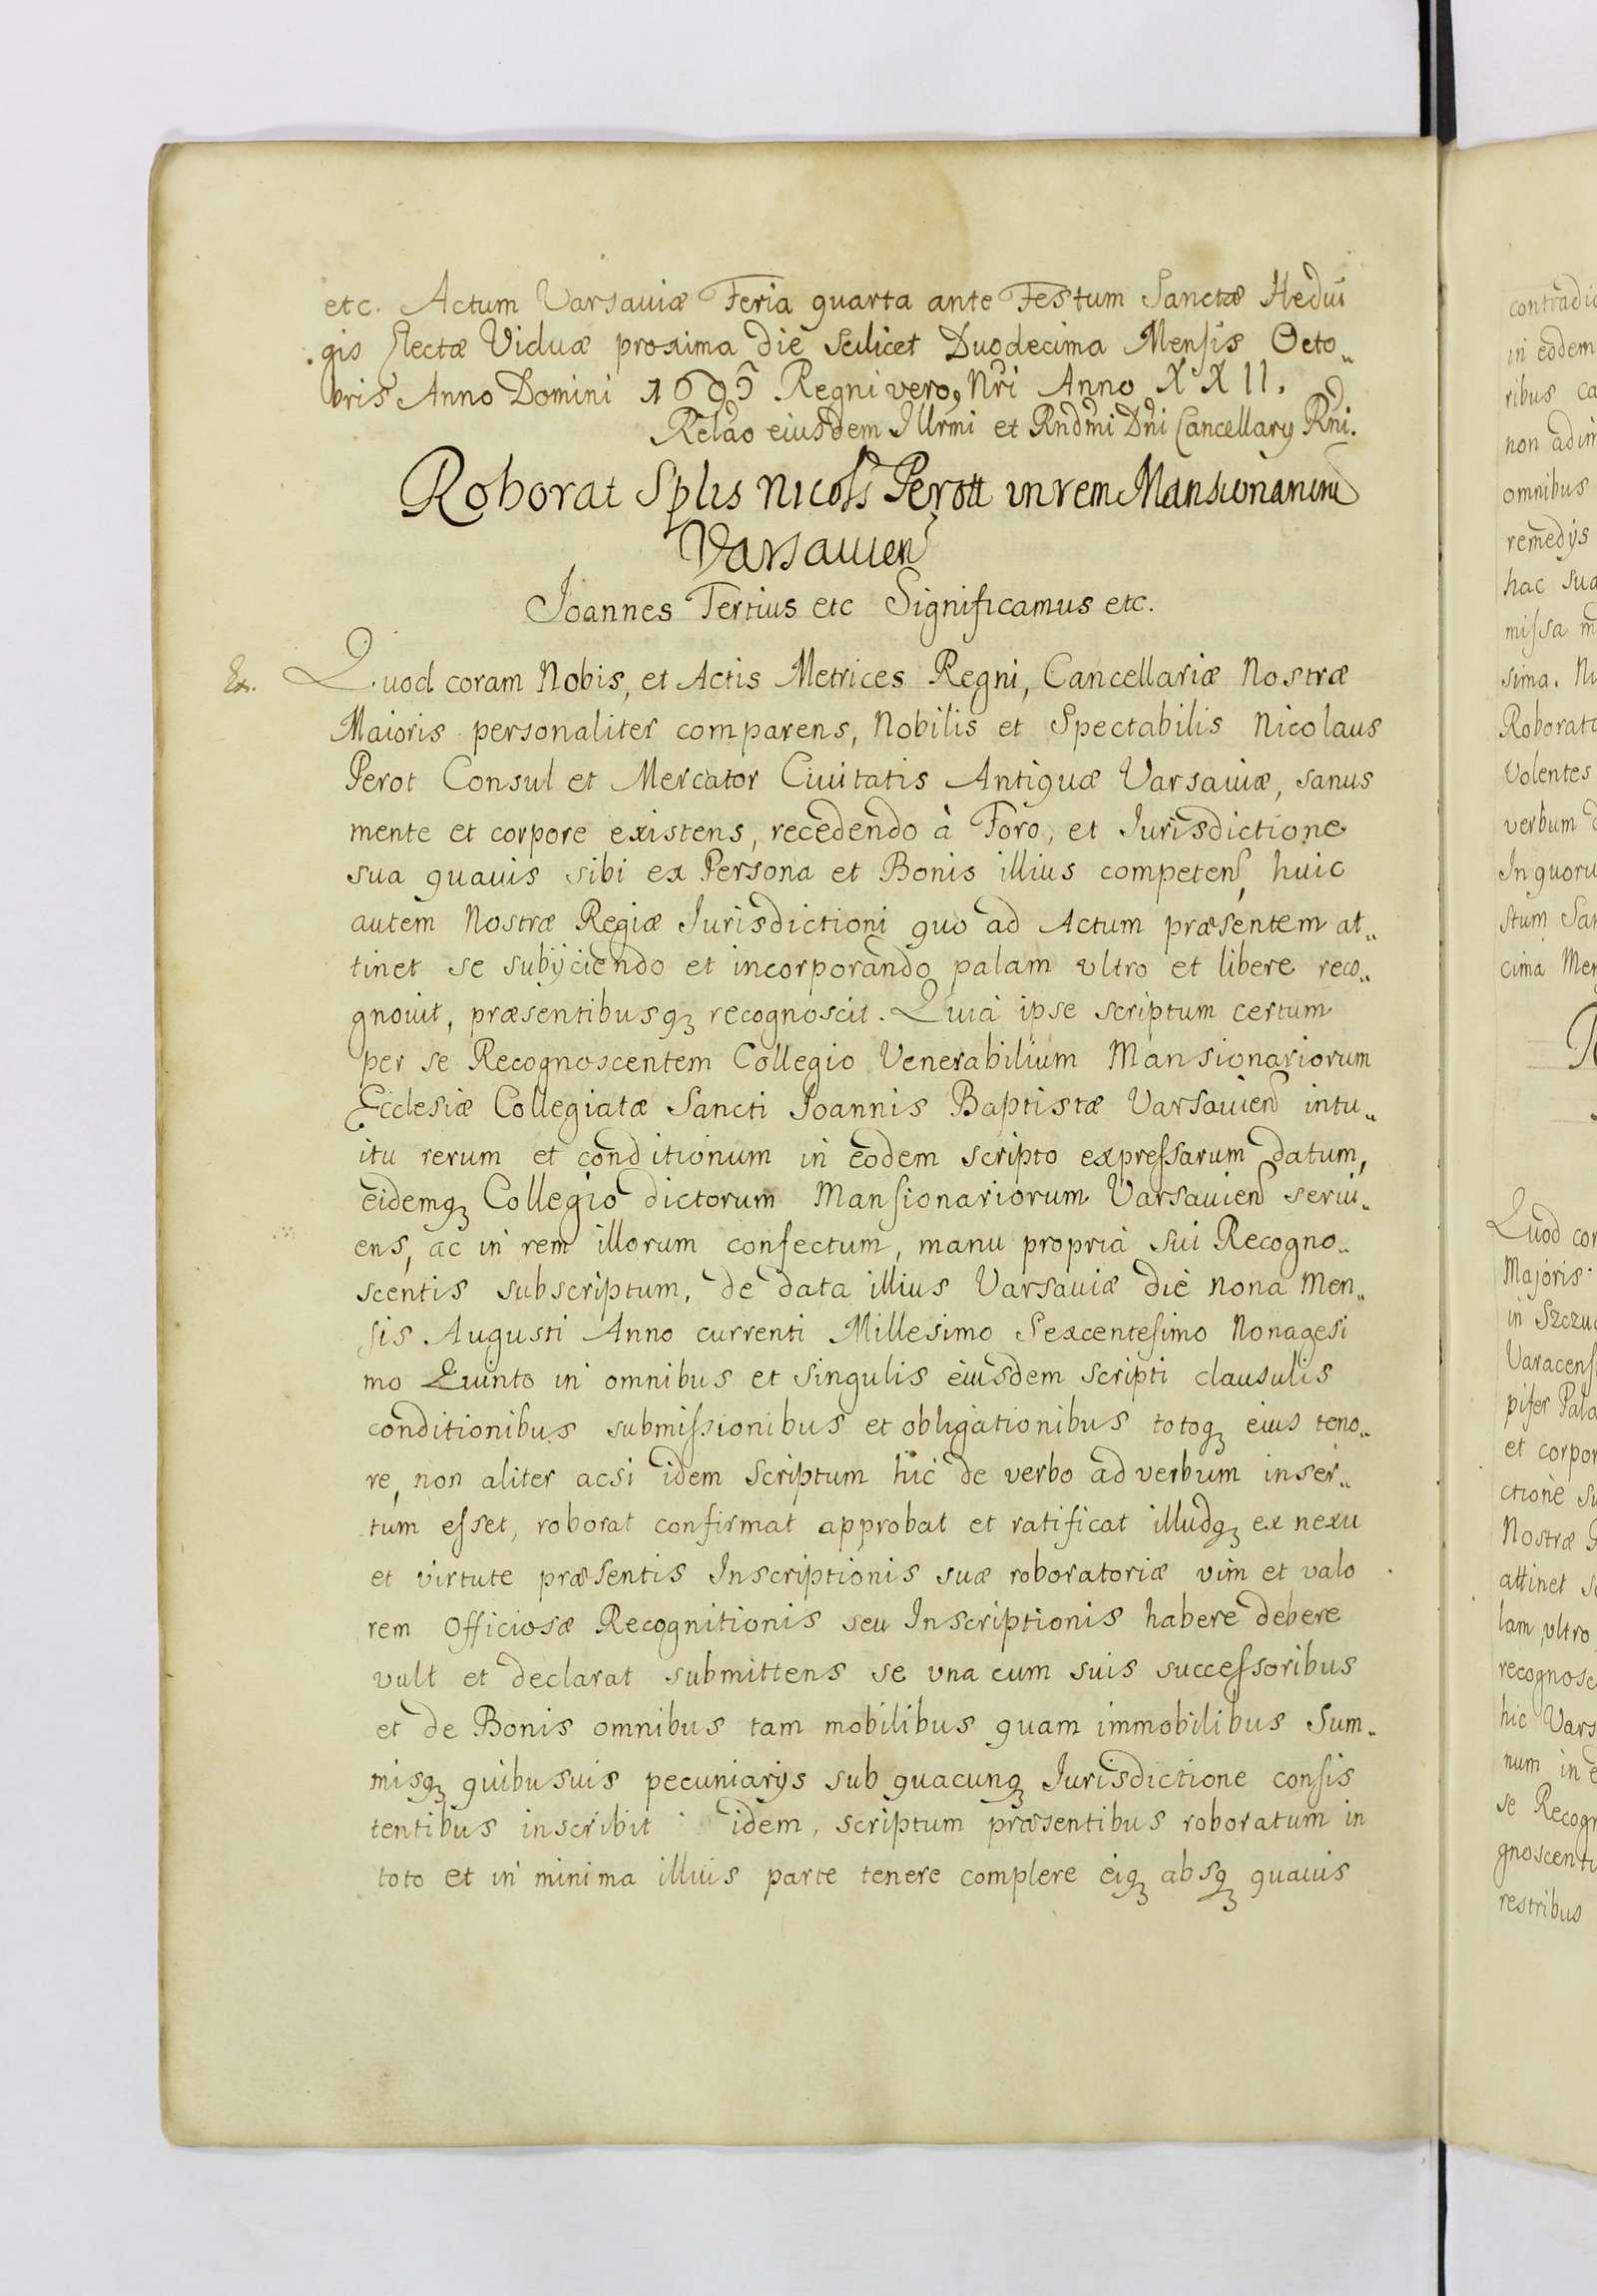 etc. Actum Varsaviæ Feria quarta ante Festum Sanctæ Hedui
gis Electæ Viduæ proxima die scilicet Duodecima Mensis Octo„
bris Anno Domini 1695 Regni vero, Nri Anno XXII.
Relao eiusdem Illrmi et Rndmi Dni Cancellarij Rni.
Roborat Splis Nicols Perott in rem Mansionarium
Varsauien
Joannes Tertius etc Significamus etc.
Ex. Quod coram Nobis, et Actis Metrices Regni, Cancellariæ Nostræ
Maioris personaliter comparens, Nobilis et Spectabilis Nicolaus
Perot Consul et Mercator Ciuitatis Antiquæ Varsauiæ, sanus
mente et corpore existens, recedendo à Foro, et Jurisdictione
sua quauis sibi ex Persona et Bonis illius competen, huic
autem Nostræ Regiæ Jurisdictioni quo ad Actum præsentem at„
tinet se subijciendo et incorporando palam vltro et libere reco„
gnouit, præsentibusq₃ recognoscit. Quia ipse scriptum certum
per se Recognoscentem Collegio Venerabilium Mansionariorum
Ecclesiæ Collegiatæ Sancti Joannis Baptistæ Varsauien intu„
itu rerum et conditionum in eodem scripto expressarum datum,
eidemq₃ Collegio dictorum Mansionariorum Varsauien serui„
ens, ac in rem illorum confectum, manu propria sui Recogno„
scentis subscriptum, de data illius Varsauiæ die nona Men„
sis Augusti Anno currenti Millesimo Sexcentesimo Nonagesi
mo Quinto in omnibus et singulis eiusdem scripti clausulis
conditionibus submissionibus et obligationibus totoq₃ eius teno„
re, non aliter acsi idem Scriptum hic de verbo ad verbum inser„
tum esset, roborat confirmat approbat et ratificat illudq₃ ex nexu
et virtute præsentis Inscriptionis suæ roboratoriæ vim et valo
rem Officiosæ Recognitionis seu Inscriptionis habere debere
vult et declarat submittens se vna cum suis successoribus
et de Bonis omnibus tam mobilibus quam immobilibus Sum„
misq₃ quibusuis pecuniarijs sub quacunq₃ Jurisdictione consis
tentibus inscribit idem, scriptum præsentibus roboratum in
toto et in minima illius parte tenere complere eiq₃ absq₃ quauis
contradic
in eodem
ribus ca
non adim
omnibus
remedijs
hac sua
missa m
sima. Ni
Roborat
Volentes
verbum d
In quoru
stum San
cima Men
Quod cor
Majoris
in Szczuc
Varacens
pifer Pala
et corpor
ctione su
Nostræ
attinet s
lam vltro
recognosc
hic Vars
num in e
se Recogn
gnoscenti
restribus